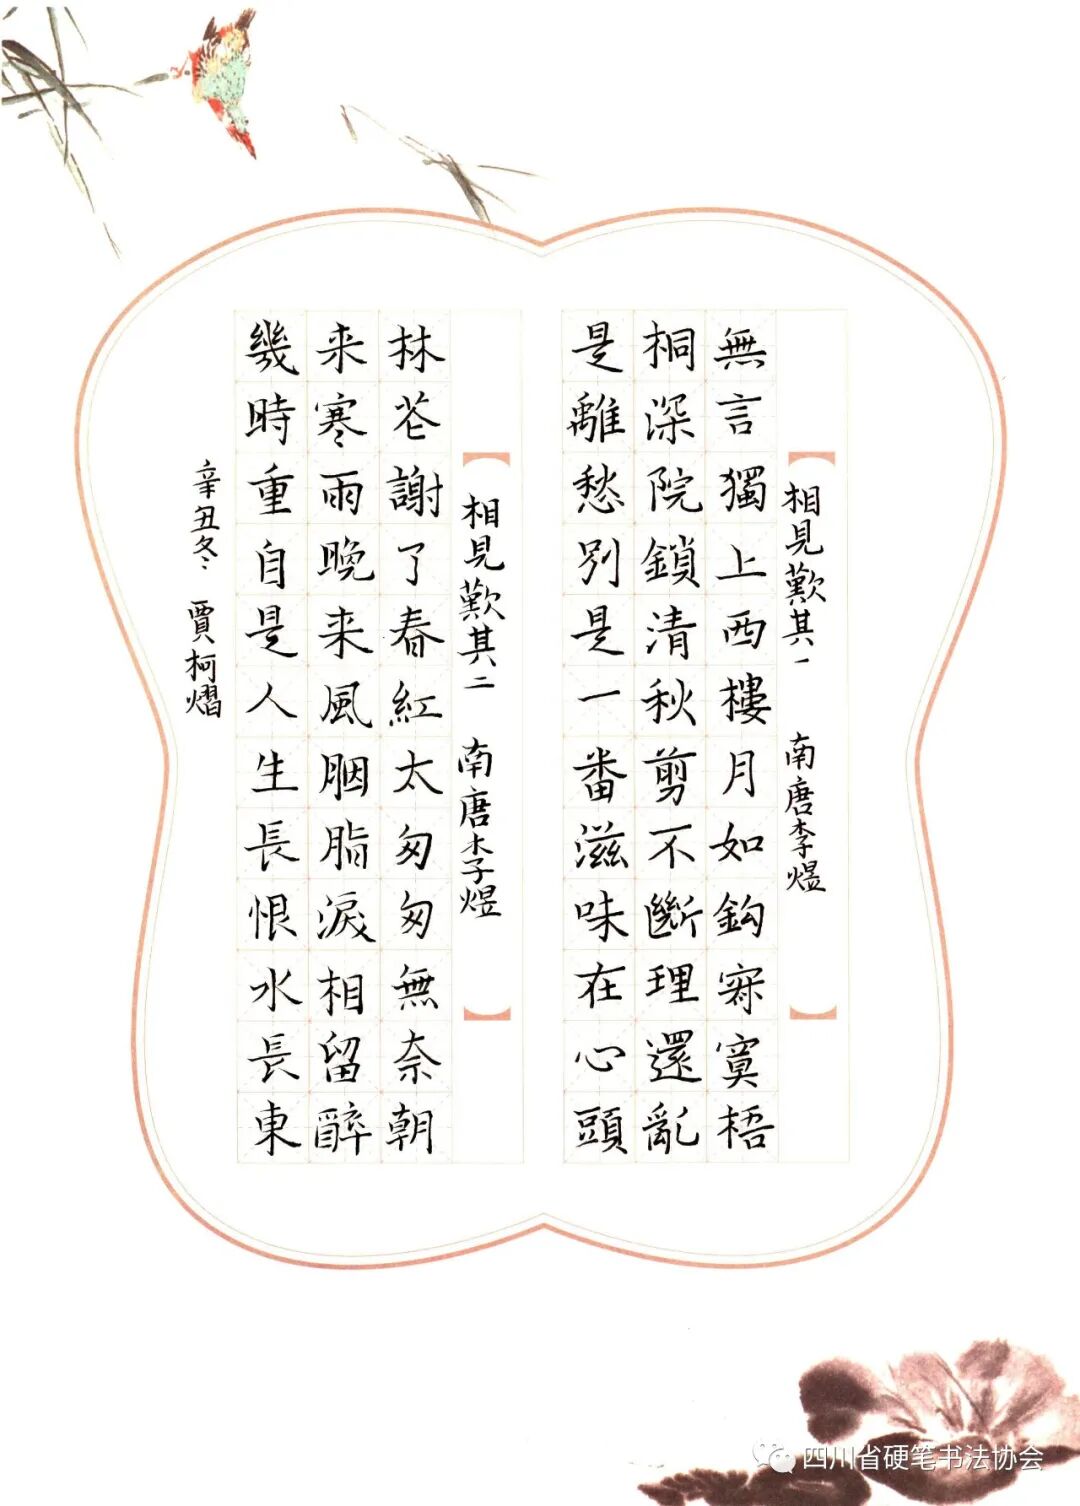 【相見歎其一 南唐李煜】
無言獨上西樓月如鈎寂寞梧
桐深院鎖清秋剪不斷理還亂
是離愁别是一番滋味在心頭
【相見歎其二 南唐李煜】
林花謝了春紅太匆匆無奈朝
来寒雨晚来風胭脂淚相留醉
幾時重自是人生長恨水長東
辛丑冬 賈柯熠
四川省硬笔书法协会